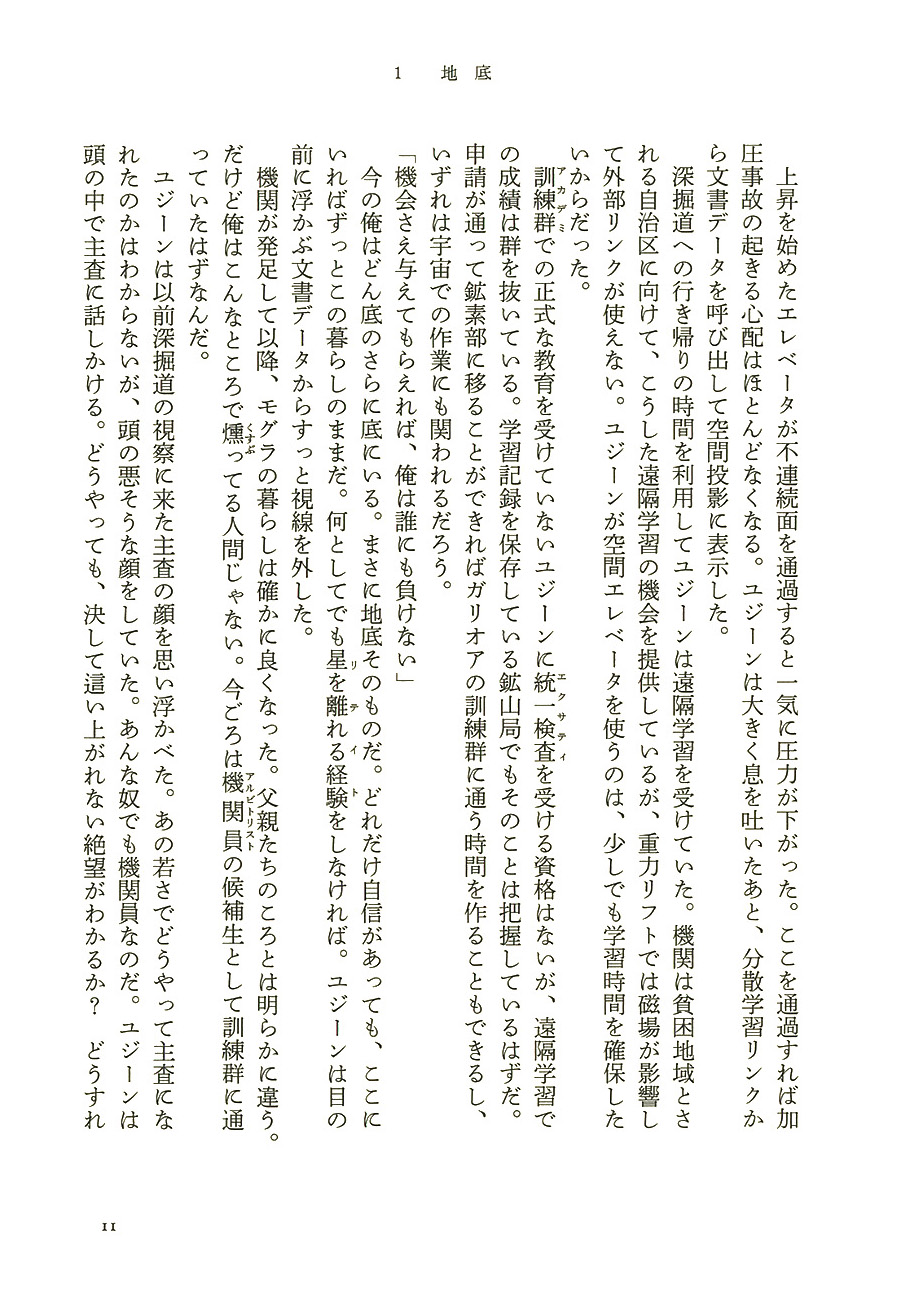 1 地底
上昇を始めたエレベータが不連続面を通過すると一気に圧力が下がった。ここを通過すれば加
圧事故の起きる心配はほとんどなくなる。ユジーンは大きく息を吐いたあと、分散学習リンクか
ら文書データを呼び出して空間投影に表示した。
深掘道への行き帰りの時間を利用してユジーンは遠隔学習を受けていた。機関は貧困地域とさ
れる自治区に向けて、こうした遠隔学習の機会を提供しているが、重力リフトでは磁場が影響し
て外部リンクが使えない。ユジーンが空間エレベータを使うのは、少しでも学習時間を確保した
いからだった。
訓練群アカデミでの正式な教育を受けていないユジーンに統一検査エクサティを受ける資格はないが、遠隔学習で
の成績は群を抜いている。学習記録を保存している鉱山局でもそのことは把握しているはずだ。
申請が通って鉱素部に移ることができればガリオアの訓練群に通う時間を作ることもできるし、
いずれは宇宙での作業にも関われるだろう。
「機会さえ与えてもらえれば、俺は誰にも負けない」
今の俺はどん底のさらに底にいる。まさに地底そのものだ。どれだけ自信があっても、ここに
いればずっとこの暮らしのままだ。何としてでも星を離れる経験リテイトをしなければ。ユジーンは目の
前に浮かぶ文書データからすっと視線を外した。
機関が発足して以降、モグラの暮らしは確かに良くなった。父親たちのころとは明らかに違う。
だけど俺はこんなところで燻くすぶってる人間じゃない。今ごろは機関員アルビトリストの候補生として訓練群に通
っていたはずなんだ。
ユジーンは以前深掘道の視察に来た主査の顔を思い浮かべた。あの若さでどうやって主査にな
れたのかはわからないが、頭の悪そうな顔をしていた。あんな奴でも機関員なのだ。ユジーンは
頭の中で主査に話しかける。どうやっても、決して這い上がれない絶望がわかるか？ どうすれ
11